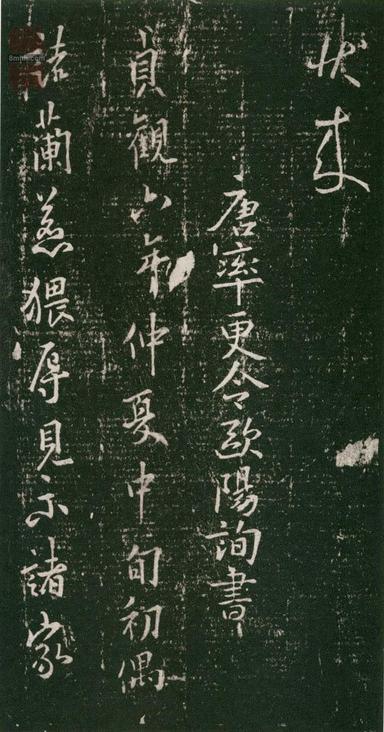 來
唐率更令歐陽詢書
貞觀六年仲夏中旬初偶
詰蘭惹猥辱見示諸家